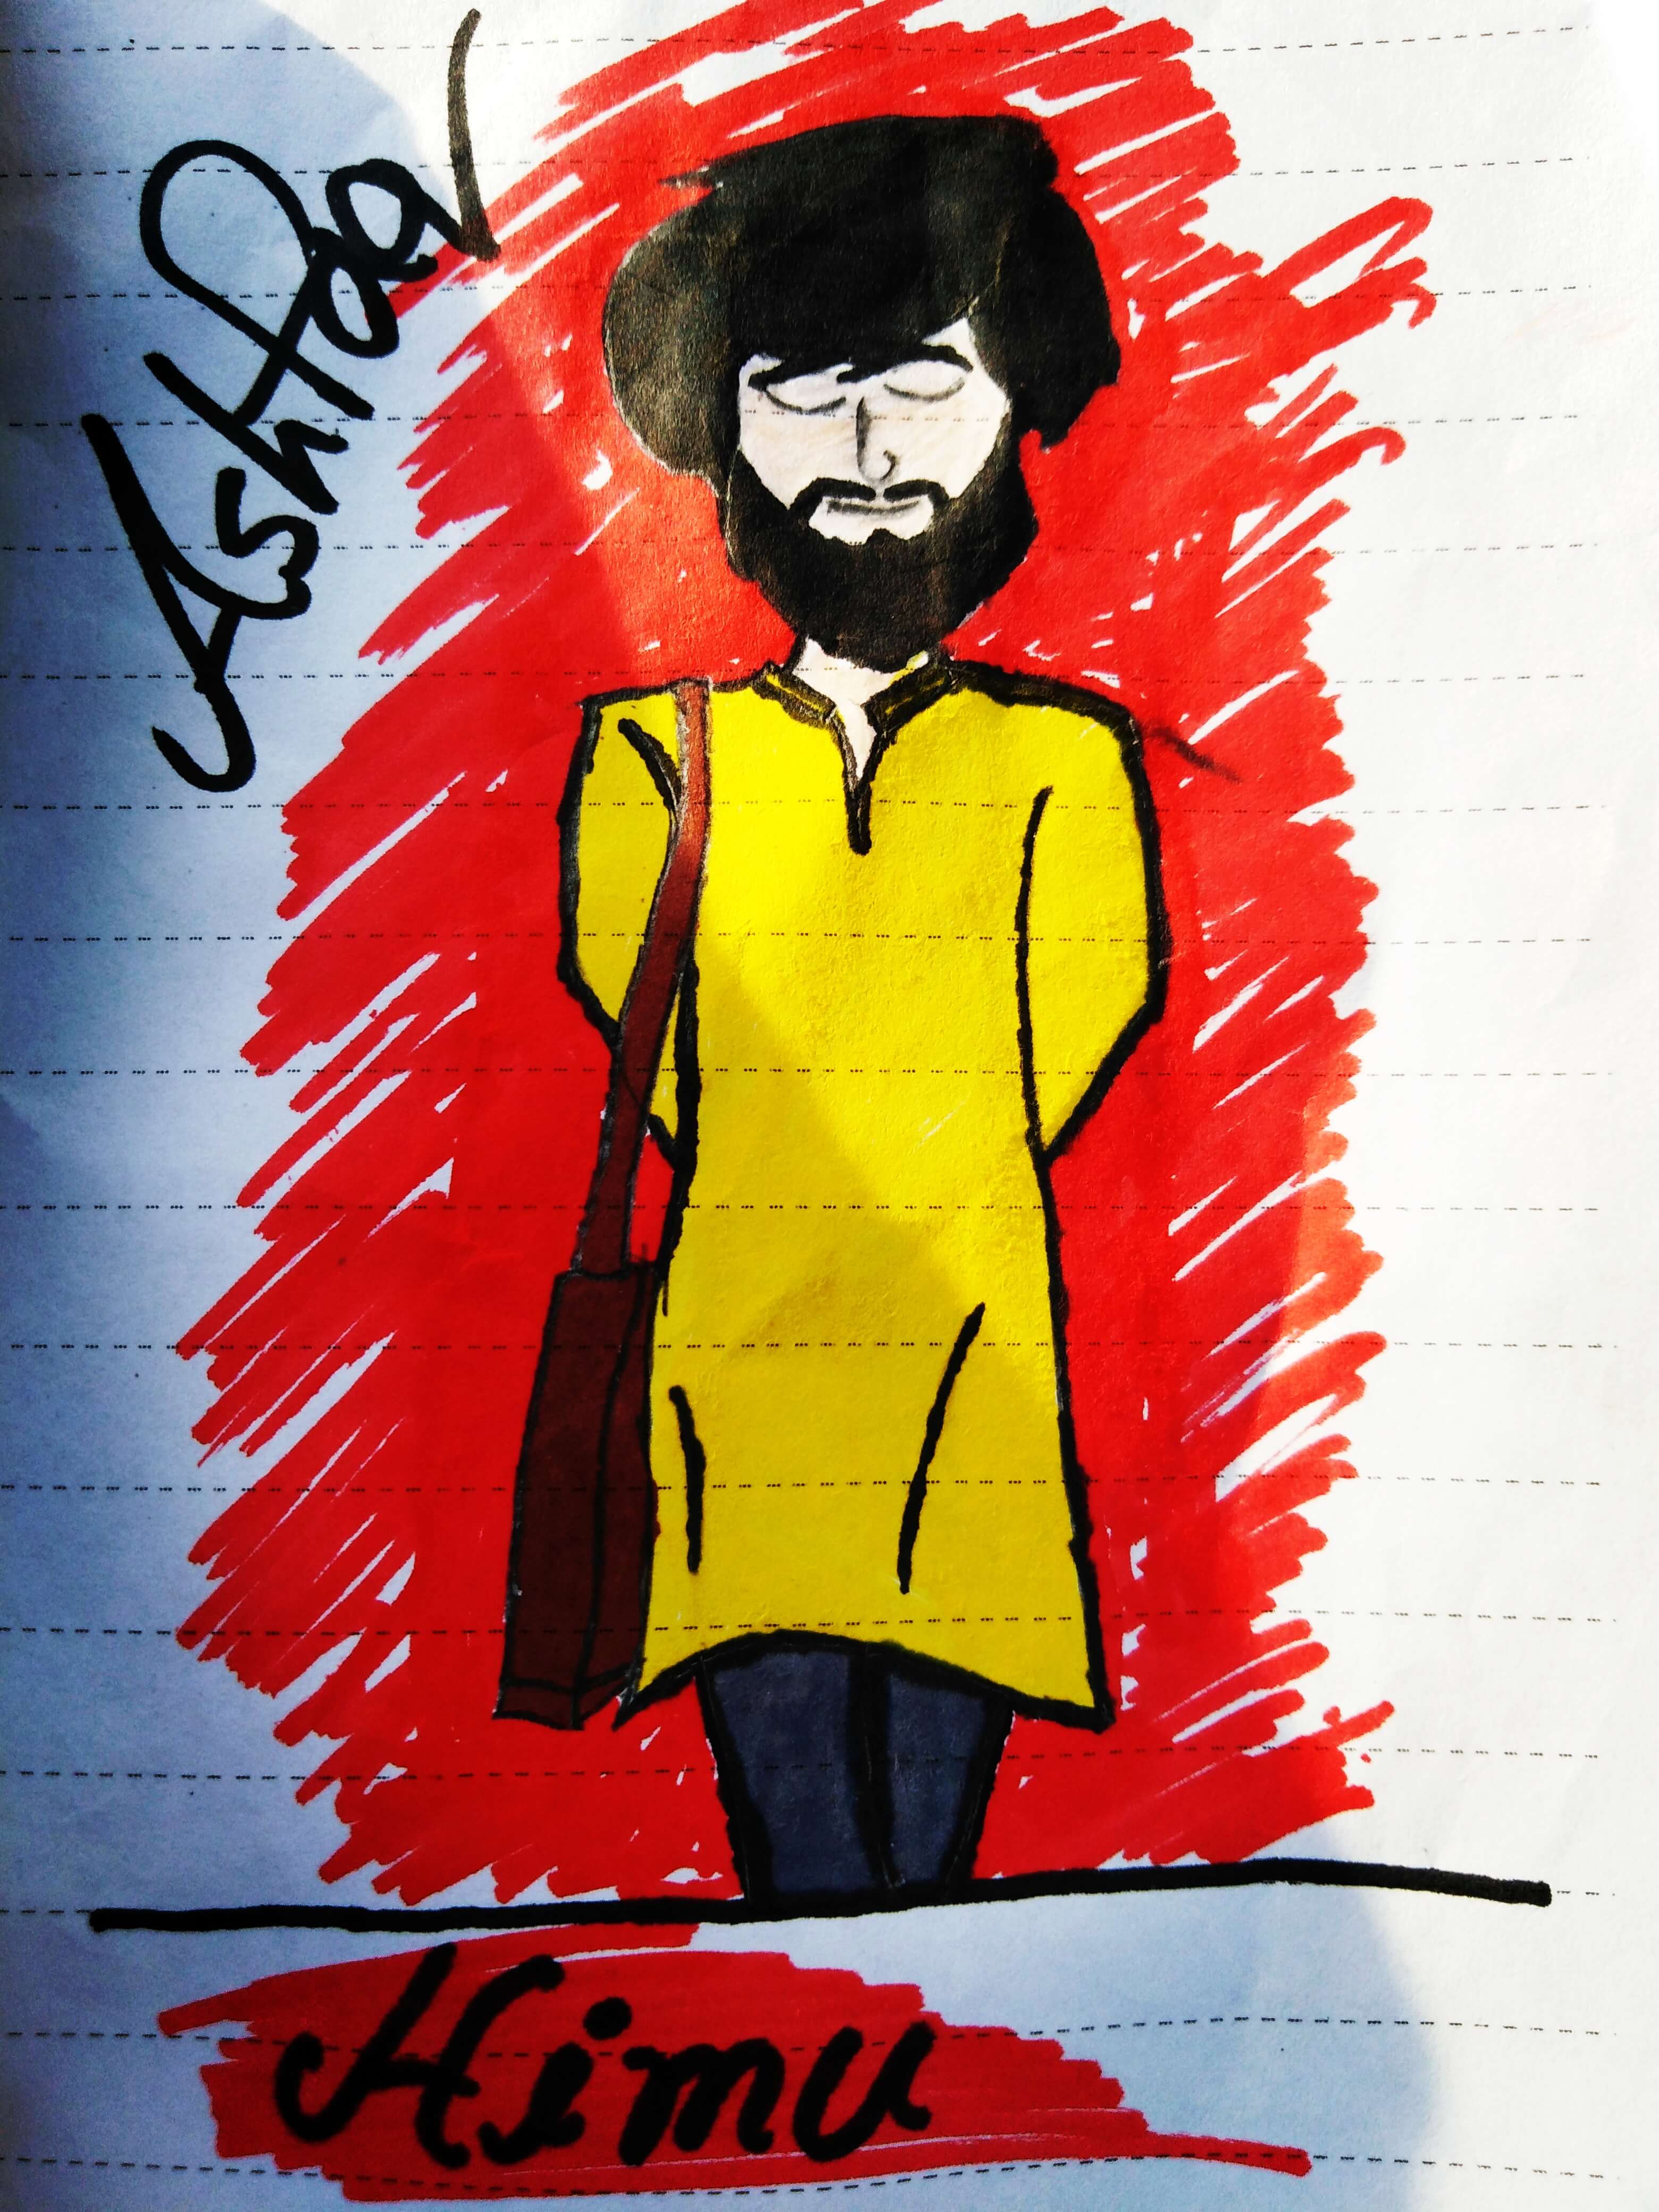 Ashfaq
Himu